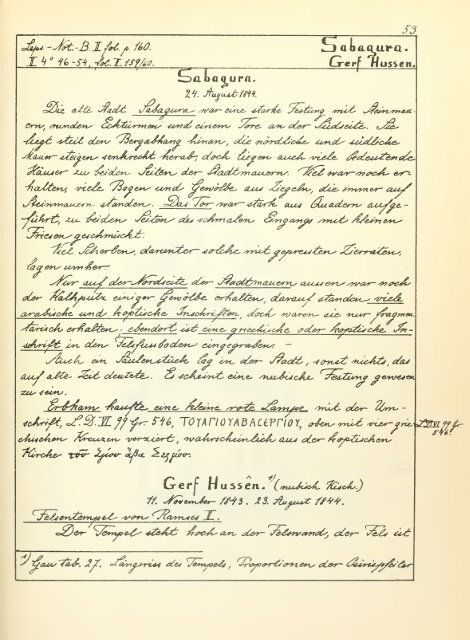 53
Leps.-Not.-B. II fol. p 160.
I 4° 46-54, fol. I. 159/60.
Sabagura.
Gerf Hussen.
Sabagura.
24. August 1844.
Die alte Stadt Sabagura war eine starke Festung mit Steinmau-
ern, runden Ecktürmen und einem Tore an der Südseite. Sie
liegt steil den Bergabhang hinan, die nördliche und südliche
Mauer steigen senkrecht herab, doch liegen auch viele bedeutende
Häuser zu beiden Seiten der Stadtmauern. Viel war noch er-
halten, viele Bogen und Gewölbe aus Ziegeln, die immer auf
Steinmauern standen. Das Tor war stark aus Quadern aufge-
führt, zu beiden Seiten des schmalen Eingangs mit kleinen
Friesen geschmückt.
Viel Scherben, darunter solche mit gepressten Zierraten,
lagen umher.
Nur auf der Nordseite der Stadtmauern aussen war noch
der Kalkputz einiger Gewölbe erhalten, darauf standen viele
arabische und koptische Inschriften, doch waren sie nur fragmen-
tarisch erhalten; ebendort ist eine griechische oder koptische In-
schrift in den Felsfussboden eingegraben. –
Auch ein Säulenstück lag in der Stadt, sonst nichts, das
auf alte Zeit deutete. Es scheint eine nubische Festung gewesen
zu sein.
Erbkam kaufte eine kleine rote Lampe mit der Um-
schrift, L.D. VI 99 Gr. 546, ΤΟΥΑΓΙΟΥΑΒΑCΕΡΓΙΟΥ, oben mit vier grie-
L.D. VI 99 Gr.
546.
chischen Kreuzen verziert, wahrscheinlich aus der koptischen
Kirche τοῦ ἁγίου ἄβα Σεργίου.
Gerf Hussên. 1) (nubisch Kisch.)
11. November 1843. 23. August 1844.
Felsentempel von Ramses II.
Der Tempel steht hoch an der Felswand, der Fels ist
1) Gau tab. 27. Längeriss des Tempels, Proportionen der Osirispfeiler